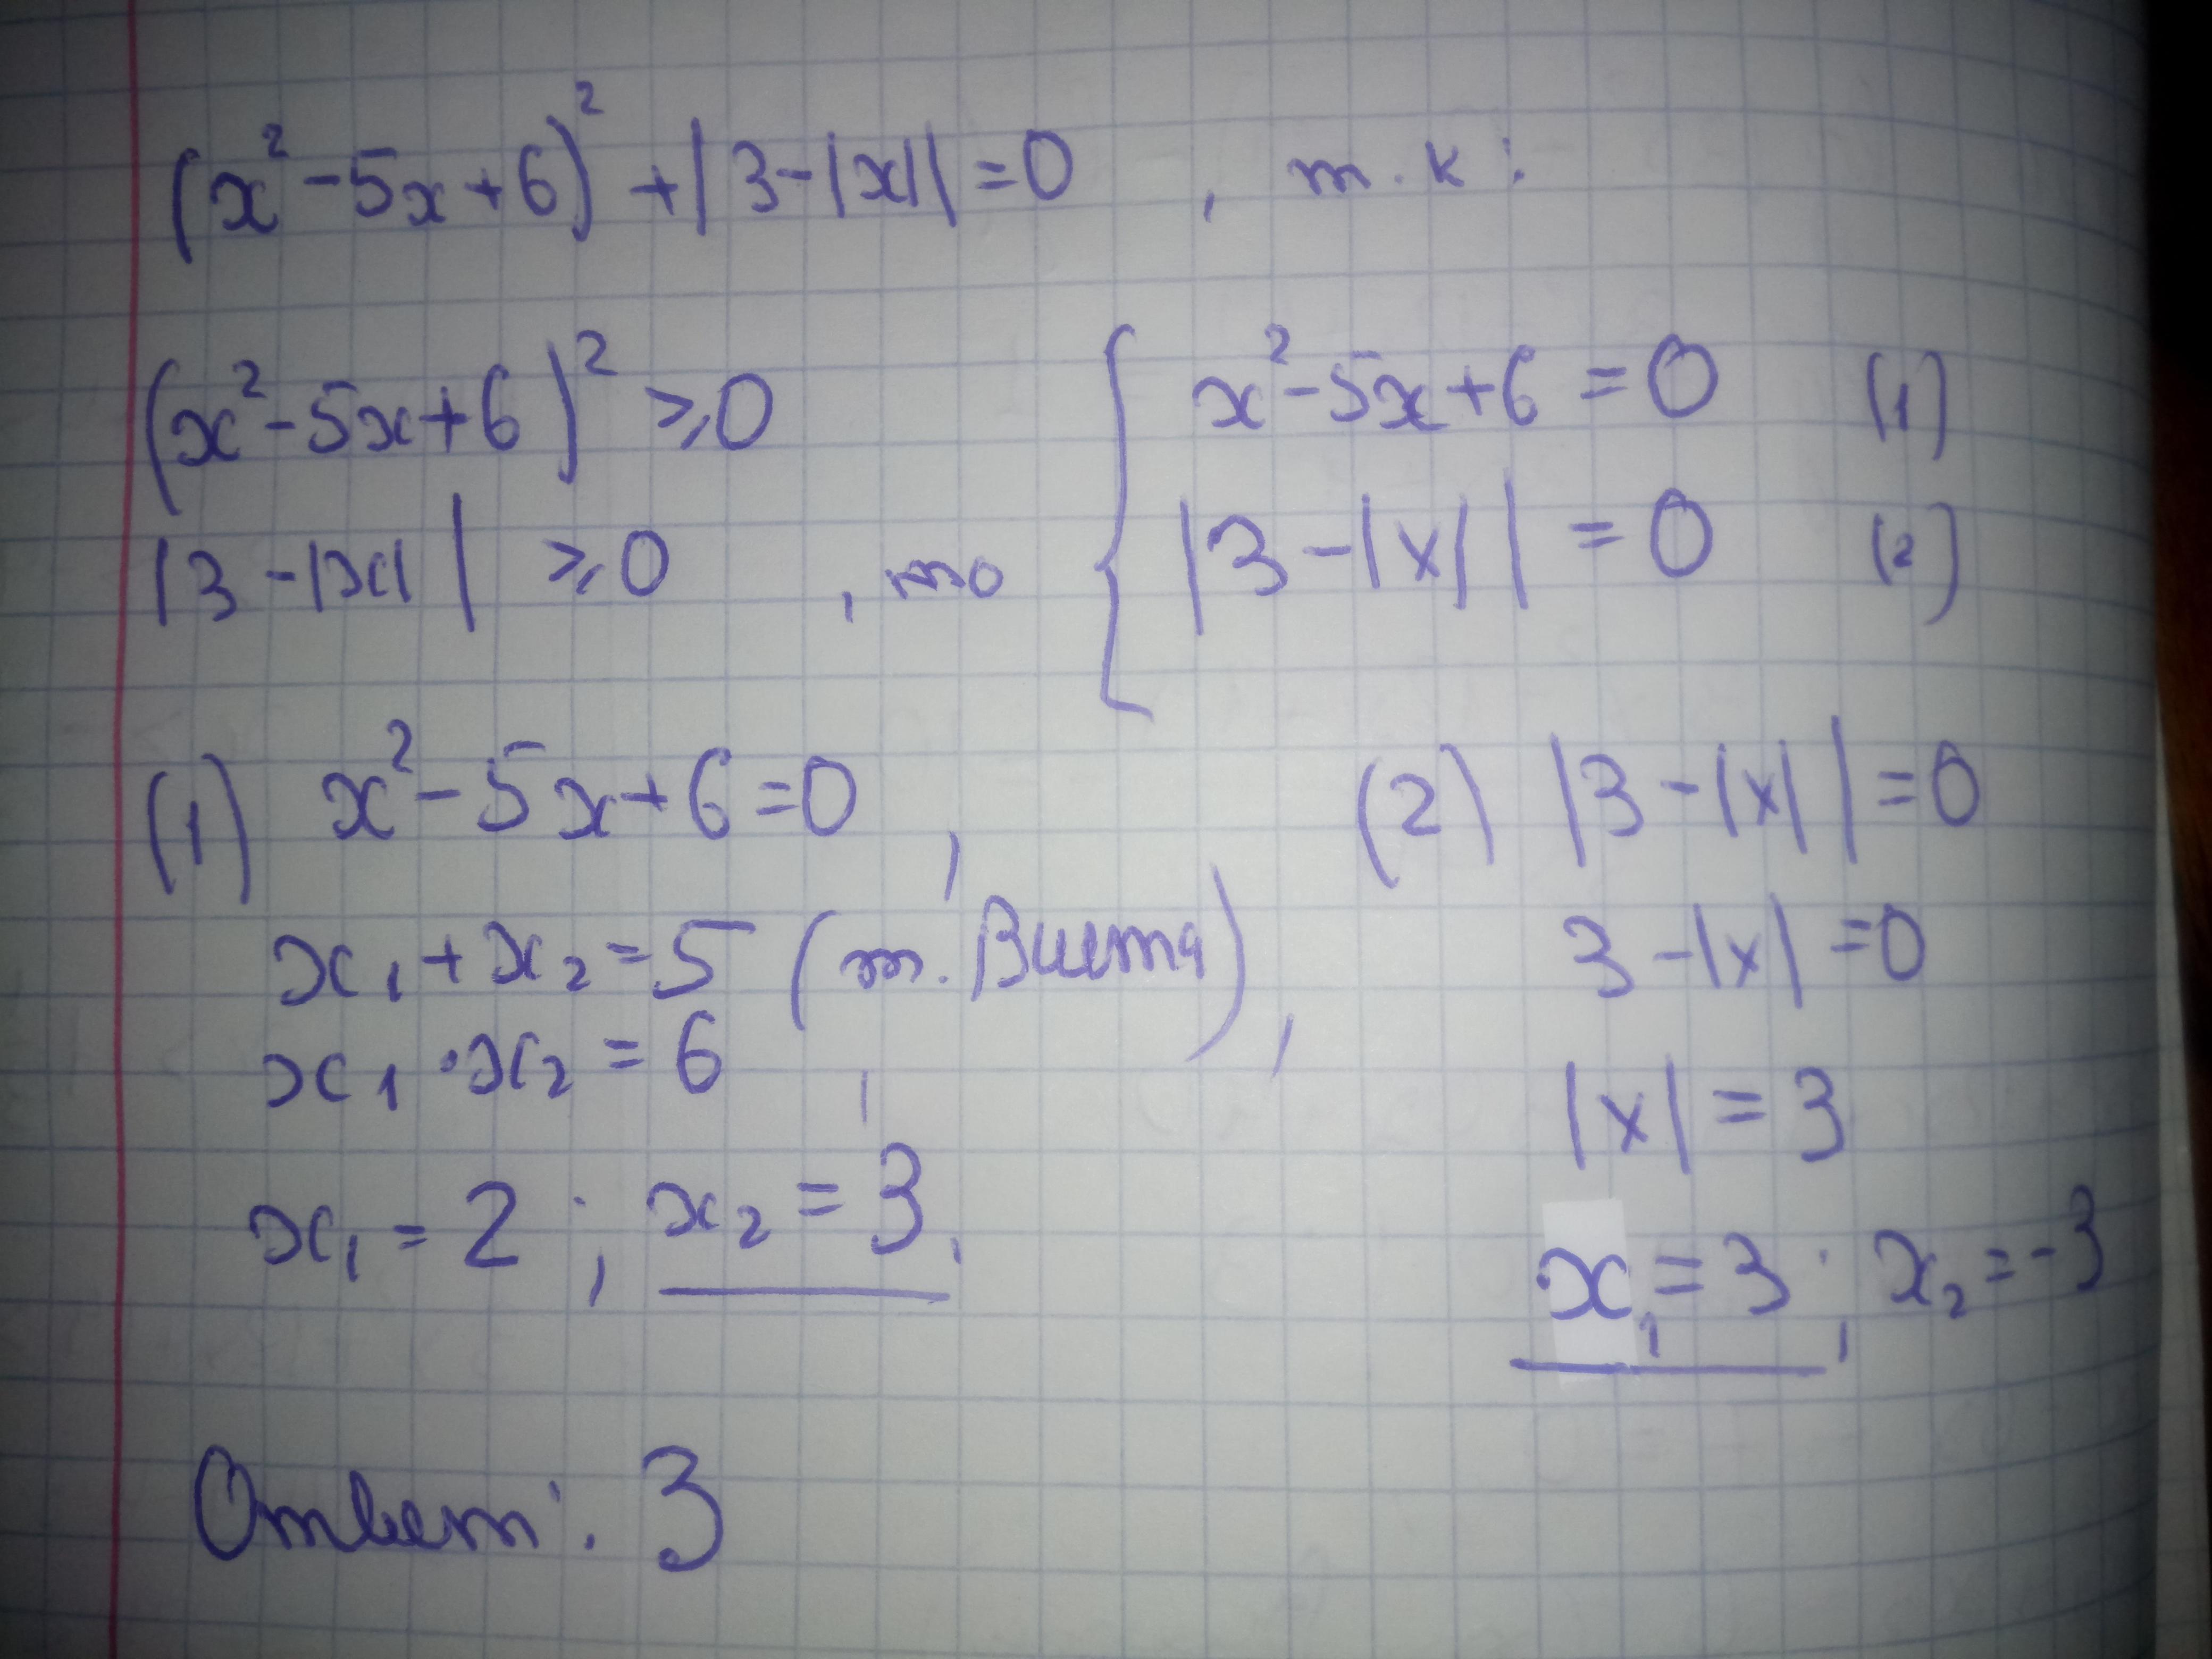 (x²-5x+6)²+|3-|x||=0 , т.к:
(x²-5x+6)²⩾0
|3-|x||⩾0 , то
{ x²-5x+6=0 (1)
|3-|x||=0 (2)
(1) x²-5x+6=0 ,
x₁+x₂=5 (т. Виета),
x₁·x₂=6 ,
x₁=2 ; x₂=3,
(2) |3-|x||=0
3-|x|=0
|x|=3
x₁=3 ; x₂=-3
Ответ: 3